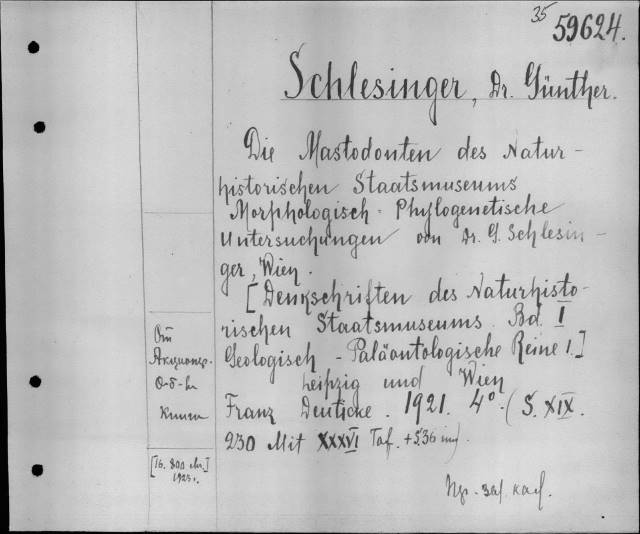 35
59624.
Schlesinger, Dr. Günther.
Die Mastodonten des Natur-
historischen Staatsmuseums
Morphologisch-Phylogenetische
Untersuchungen von Dr. G. Schlesin-
ger, Wien.
[Denkschriften des Naturhisto-
rischen Staatsmuseums. Bd. I
Geologisch - Paläontologische Reihe 1.]
Leipzig und Wien
Franz Deuticke. 1921. 4°. (S. XIX.
230 Mit XXXVI Taf. + S.36
От
Акционер.
О-б-ва
Книга
1925 г.